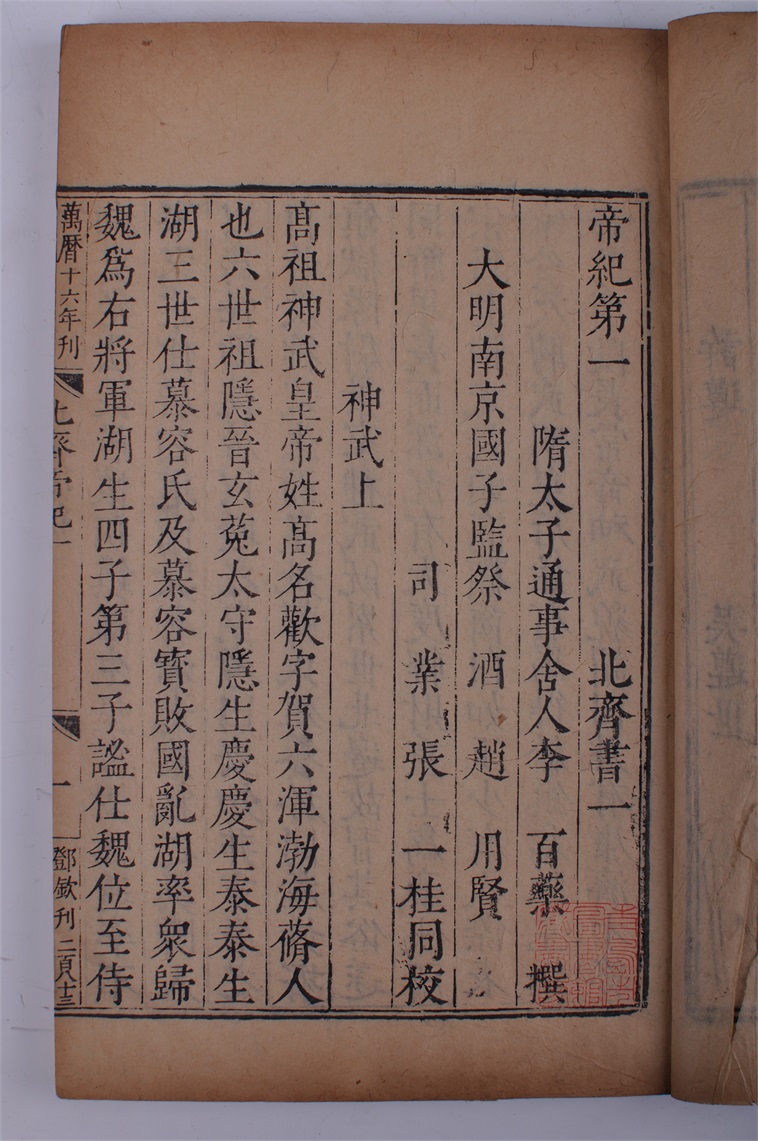 帝紀第一 北齊書一
隋太子通事舍人李 百藥 撰
大明南京國子監祭 酒 趙 用賢
司 業 張 一桂同校
神武上
髙祖神武皇帝姓髙名歡字賀六渾渤海蓨人
也六世祖隱晉玄菟太守隱生慶慶生泰泰生
湖三世仕慕容氏及慕容寳敗國亂湖率衆歸
魏爲右將軍湖生四子第三子謐仕魏位至侍
萬曆十六年刊
北齊帝紀一
一
鄧欽刊二頁十三